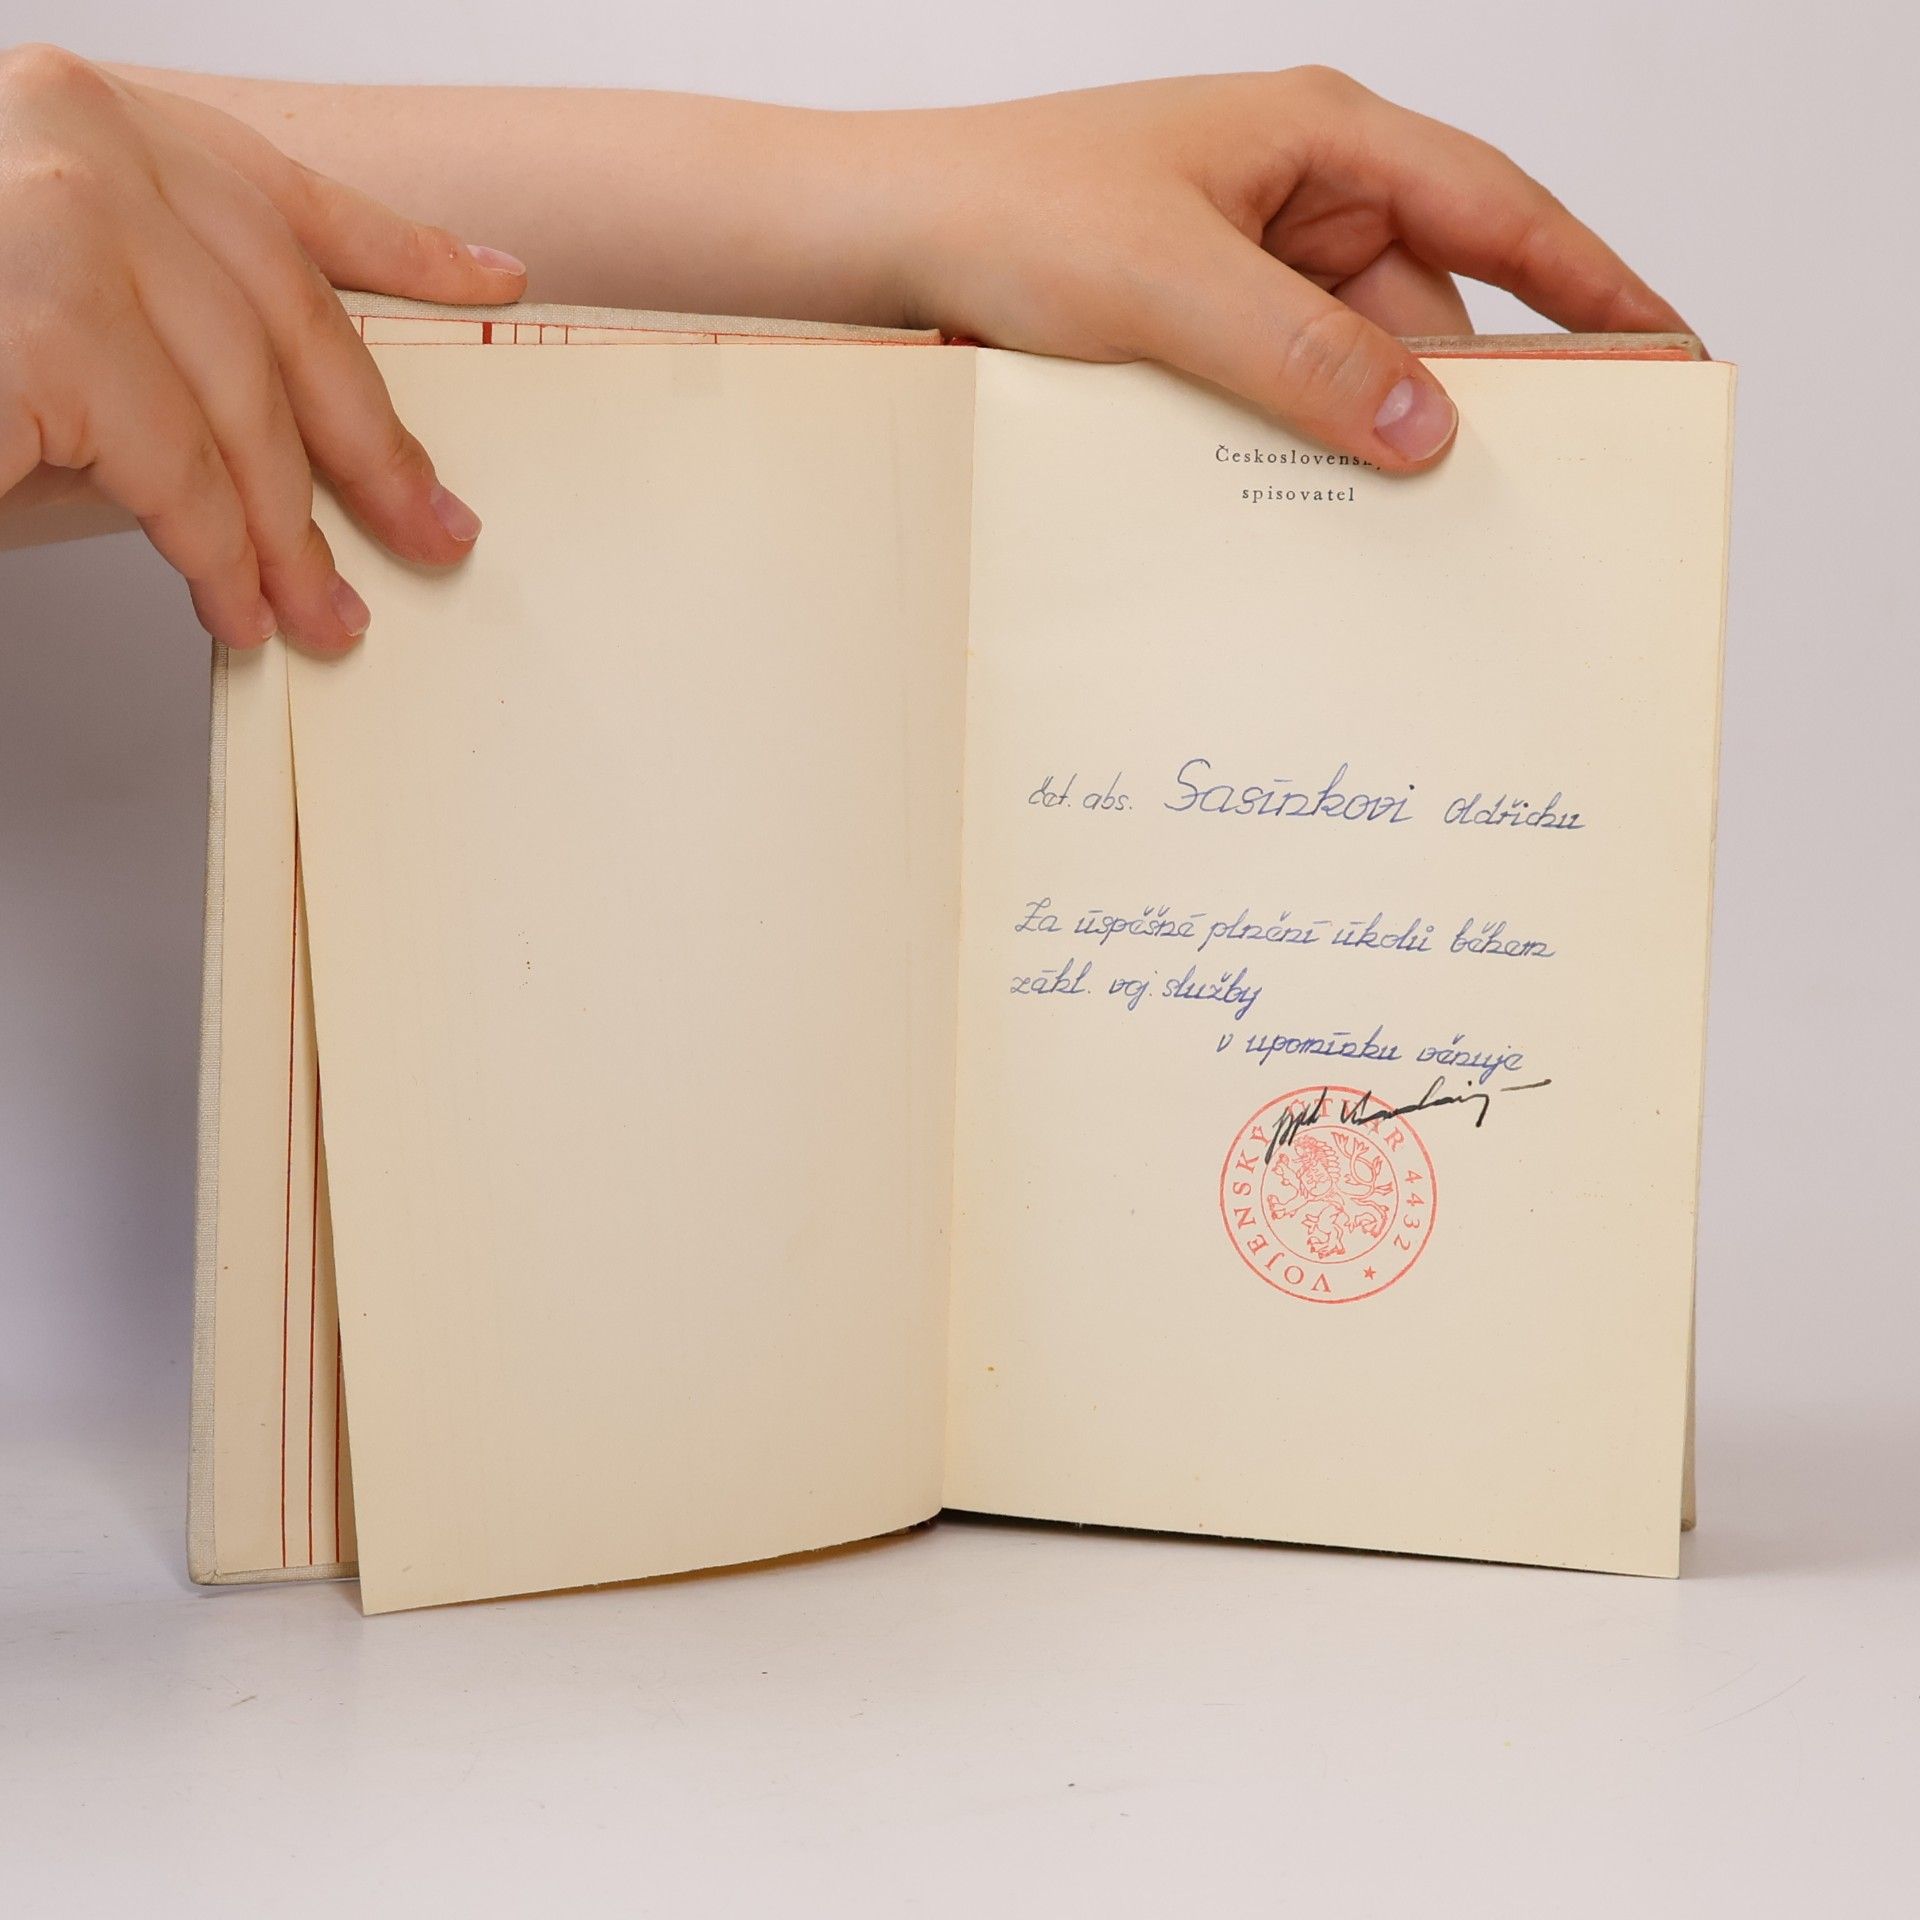 Československý
spisovatel
čet. abs. Sasínkovi Oldřichu
Za úspěšné plnění úkolů během
zákl. voj. služby
v upomínku věnuje
VOJENSKÝ ÚTVAR 4432